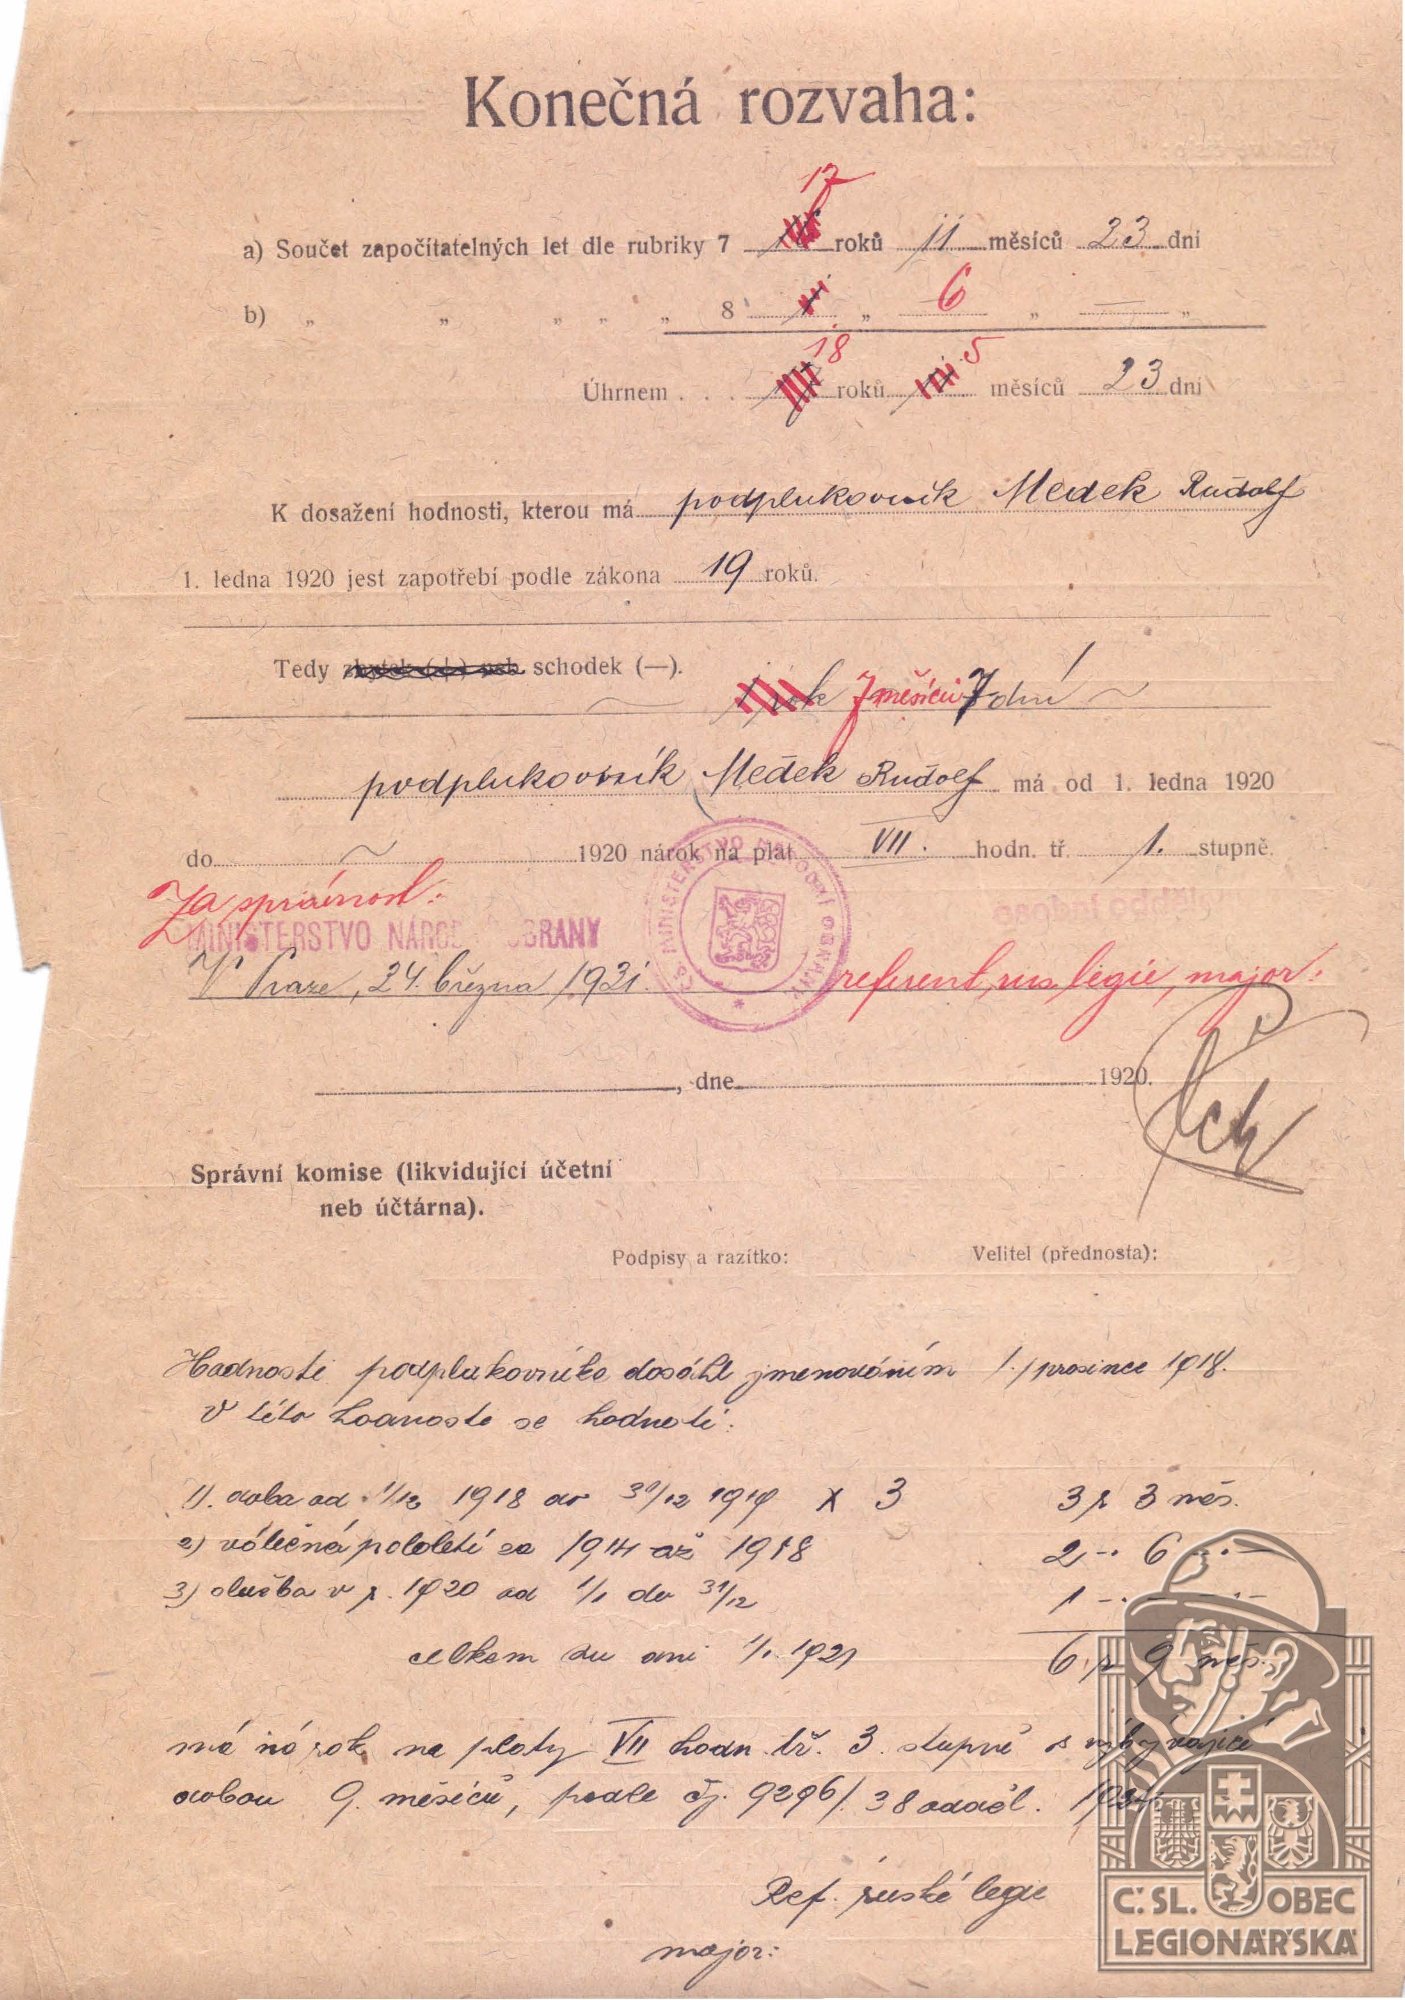 Konečná rozvaha:
17
a) Součet započítatelných let dle rubriky 7 roků 11 měsíců 23 dní
b) „ „ „ „ „ 8 „ 6 „ — „
18 5
Úhrnem . . . roků měsíců 23 dní
K dosažení hodnosti, kterou má podplukovník Medek Rudolf
1. ledna 1920 jest zapotřebí podle zákona 19 roků.
Tedy zbytek (+) neb schodek (—).
1 rok 7 měsíců 7 dní
podplukovník Medek Rudolf má od 1. ledna 1920
do ~ 1920 nárok na plat VII. hodn. tř. 1. stupně.
Za správnost:
MINISTERSTVO NÁRODNÍ OBRANY
ČS. MINISTERSTVO NÁRODNÍ OBRANY *
osobní oddělení
V Praze, 24. března 1921. referent rus. legie, major:
, dne 1920.
Správní komise (likvidující účetní
neb účtárna).
Podpisy a razítko: Velitel (přednosta):
Hodnosti podplukovníka dosáhl jmenováním 1. prosince 1918.
V této hodnosti se hodnotí:
1). doba od 1/12 1918 do 31/12 1919 x 3 3 r 3 měs.
2) válečná pololetí za 1914 až 1918 2 -„- 6 -„-
3) služba v r. 1920 od 1/1 do 31/12 1 -„- -„-
celkem ku dni 1/1. 1921 6 r 9 měs.
má nárok na platy VII hodn. tř. 3. stupně s zbývající
dobou 9. měsíců, podle čj. 9296/38 odděl.
Ref. ruské legie
major:
Č. SL. OBEC
LEGIONÁŘSKÁ